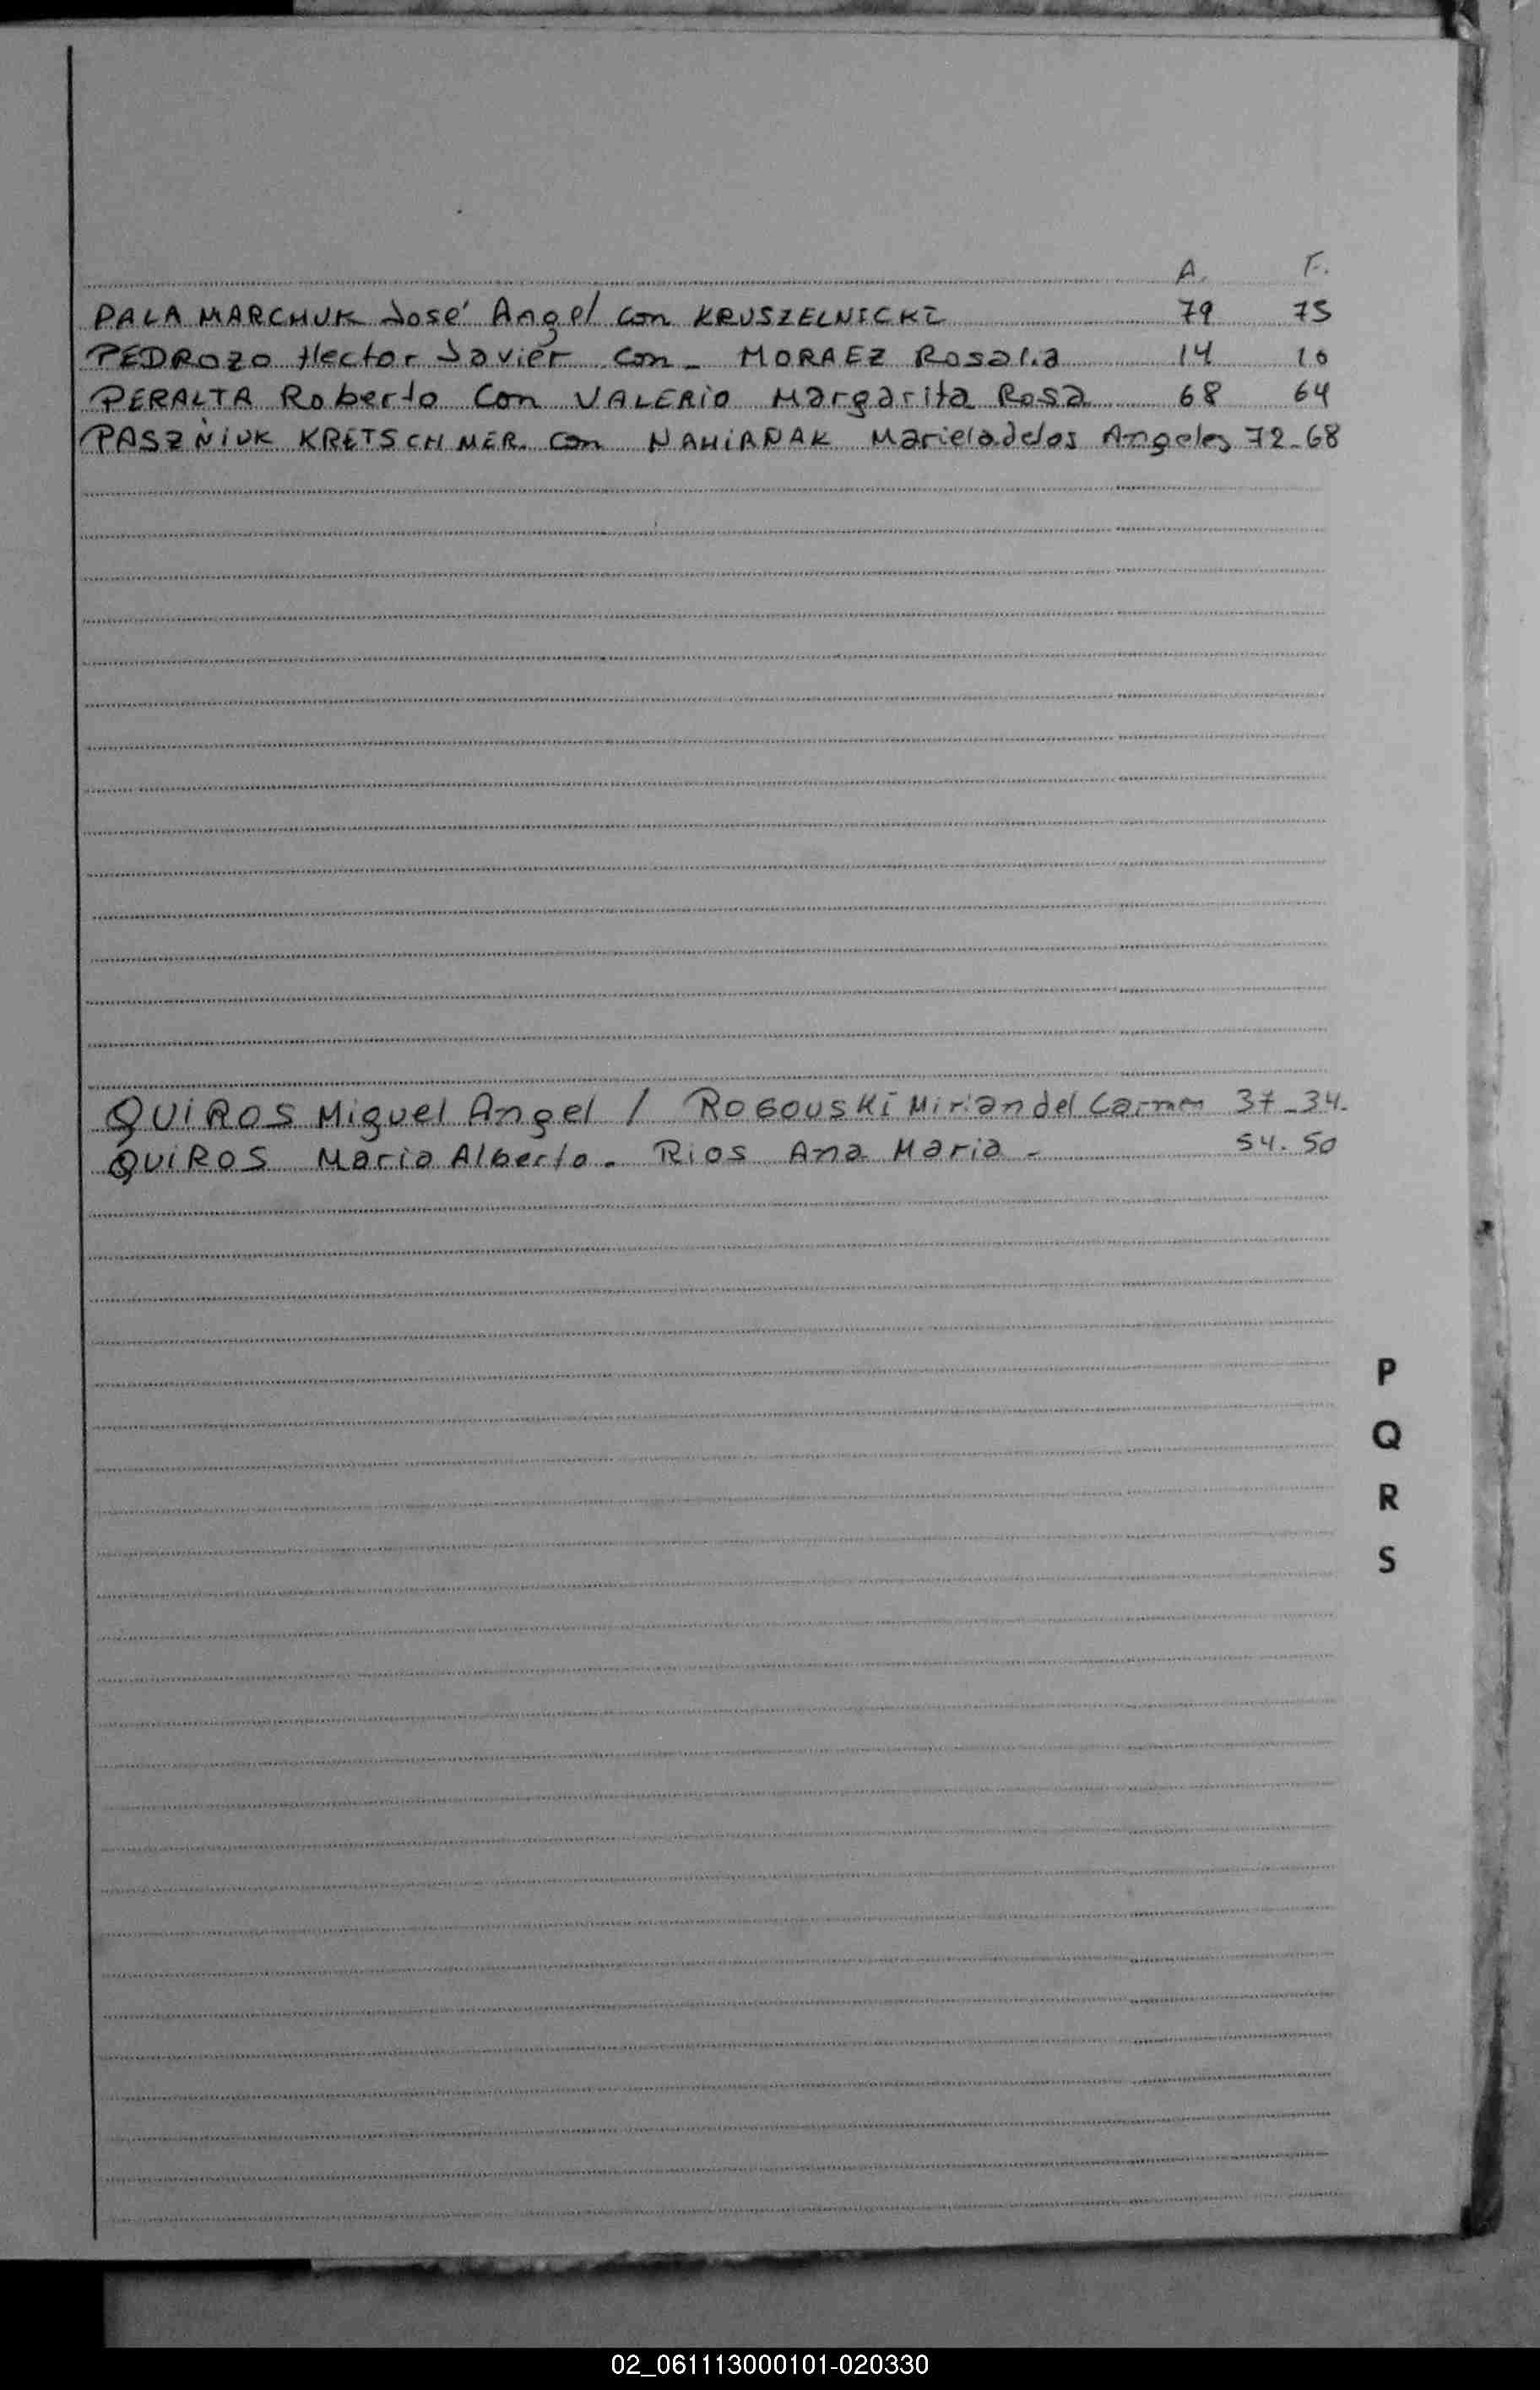 A. F.
PALAMARCHUK José Angel con KRUSZELNICKI 79 75
PEDROZO Hector Javier con - MORAEZ Rosalia 14 10
PERALTA Roberto Con VALERIO Margarita Rosa 68 64
PASZÑIUK KRETSCHMER con NAHIRNAK Mariela de los Angeles 72-68
QUIROS Miguel Angel / ROGOUSKI Mirian del Carmen 37-34.
QUIROS Mario Alberto. Rios Ana Maria - 54.50
P
Q
R
S
02_061113000101-020330